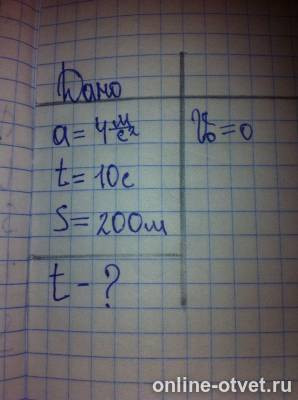 Дано
a = 4 м/с²
t = 10с
S = 200м
t - ?
V₀ = 0
online-otvet.ru